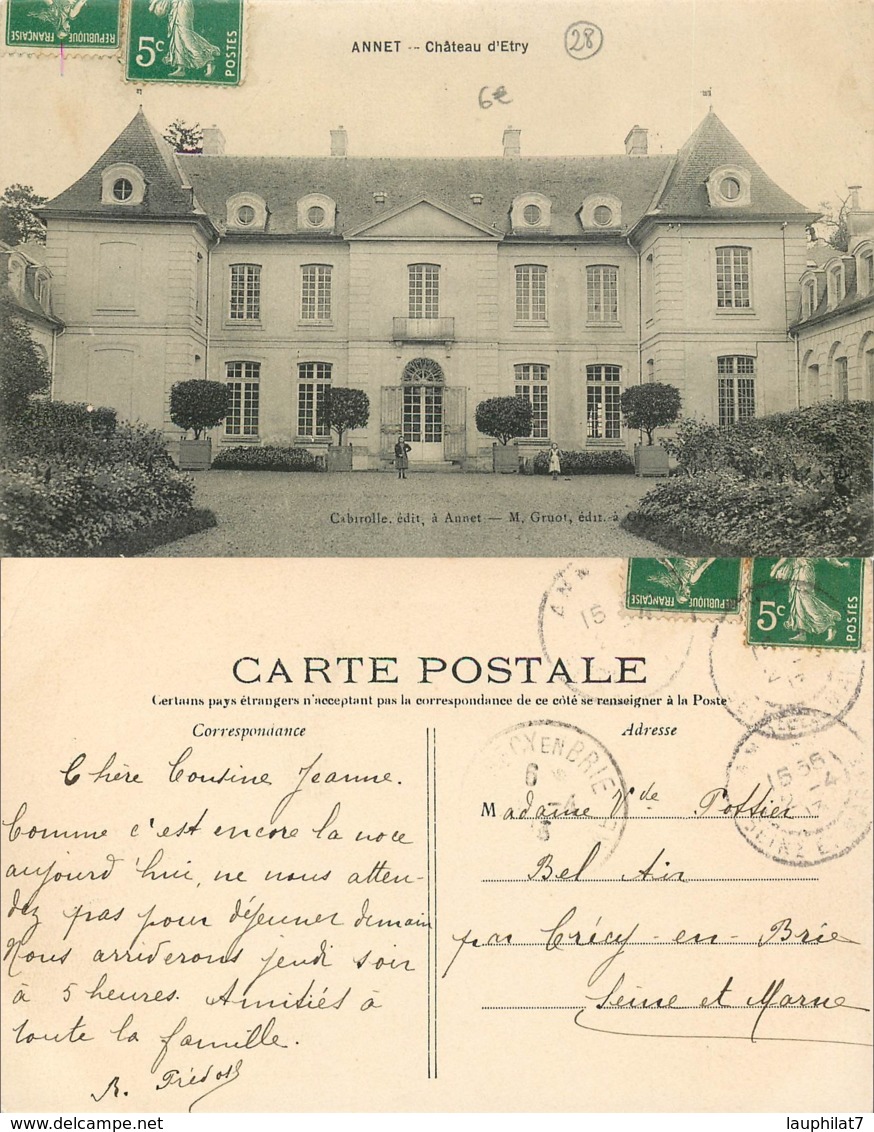 REPUBLIQUE FRANÇAISE
5c POSTES
ANNET -- Château d'Etry
28
6€
Cabirolle, édit, à Annet — M. Gruot, édit. à
REPUBLIQUE FRANÇAISE
5c POSTES
ANN
15
CARTE POSTALE
Certains pays étrangers n'acceptent pas la correspondance de ce côté se renseigner à la Poste
Correspondance
Adresse
CY EN BRIE
6
15 35
SEINE ET
Chère Cousine Jeanne.
Comme c'est encore la noce
aujourd'hui, ne nous atten-
dez pas pour déjeuner demain
Nous arriverons jeudi soir
à 5 heures. Amitiés à
toute la famille.
Madame Vde Pottier
Bel Air
par Crécy-en-Brie
Seine et Marne
lauphilat7